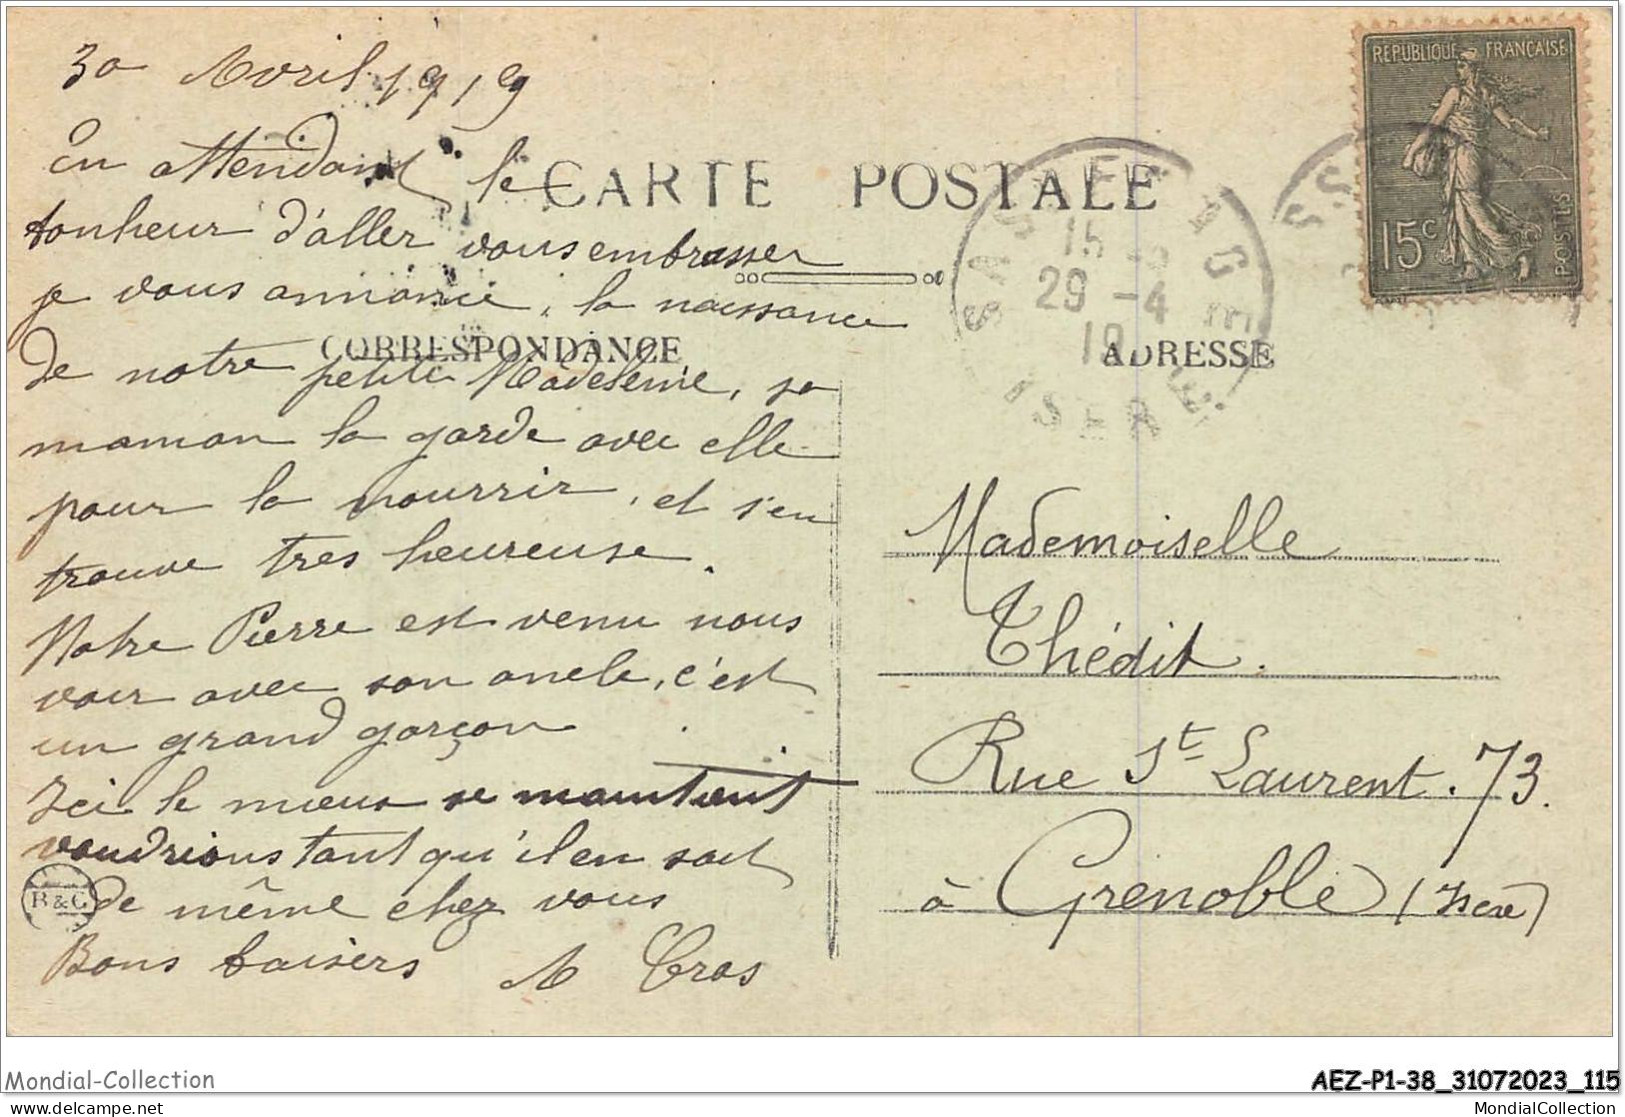 30 Avril 1919
En attendant le
bonheur d'aller vous embrasser
je vous annonce, la naissance
de notre petite Madeleine, sa
maman la garde avec elle
pour la nourrir, et s'en
trouve tres heureuse.
Notre Pierre est venu nous
voir avec son oncle, c'est
un grand garçon
Ici le mieux se maintient
voudrions tant qu'il en soit
de même chez vous
Bons baisers A Cros
CARTE POSTALE
CORRESPONDANCE
ADRESSE
B&C
REPUBLIQUE FRANÇAISE
15c
POSTES
SASSENAGE
15
29 -4
19
ISERE
Mademoiselle
Thédit.
Rue St Laurent. 73.
à Grenoble (Isère)
Mondial-Collection
AEZ-P1-38_31072023_115
delcampe.net
MondialCollection